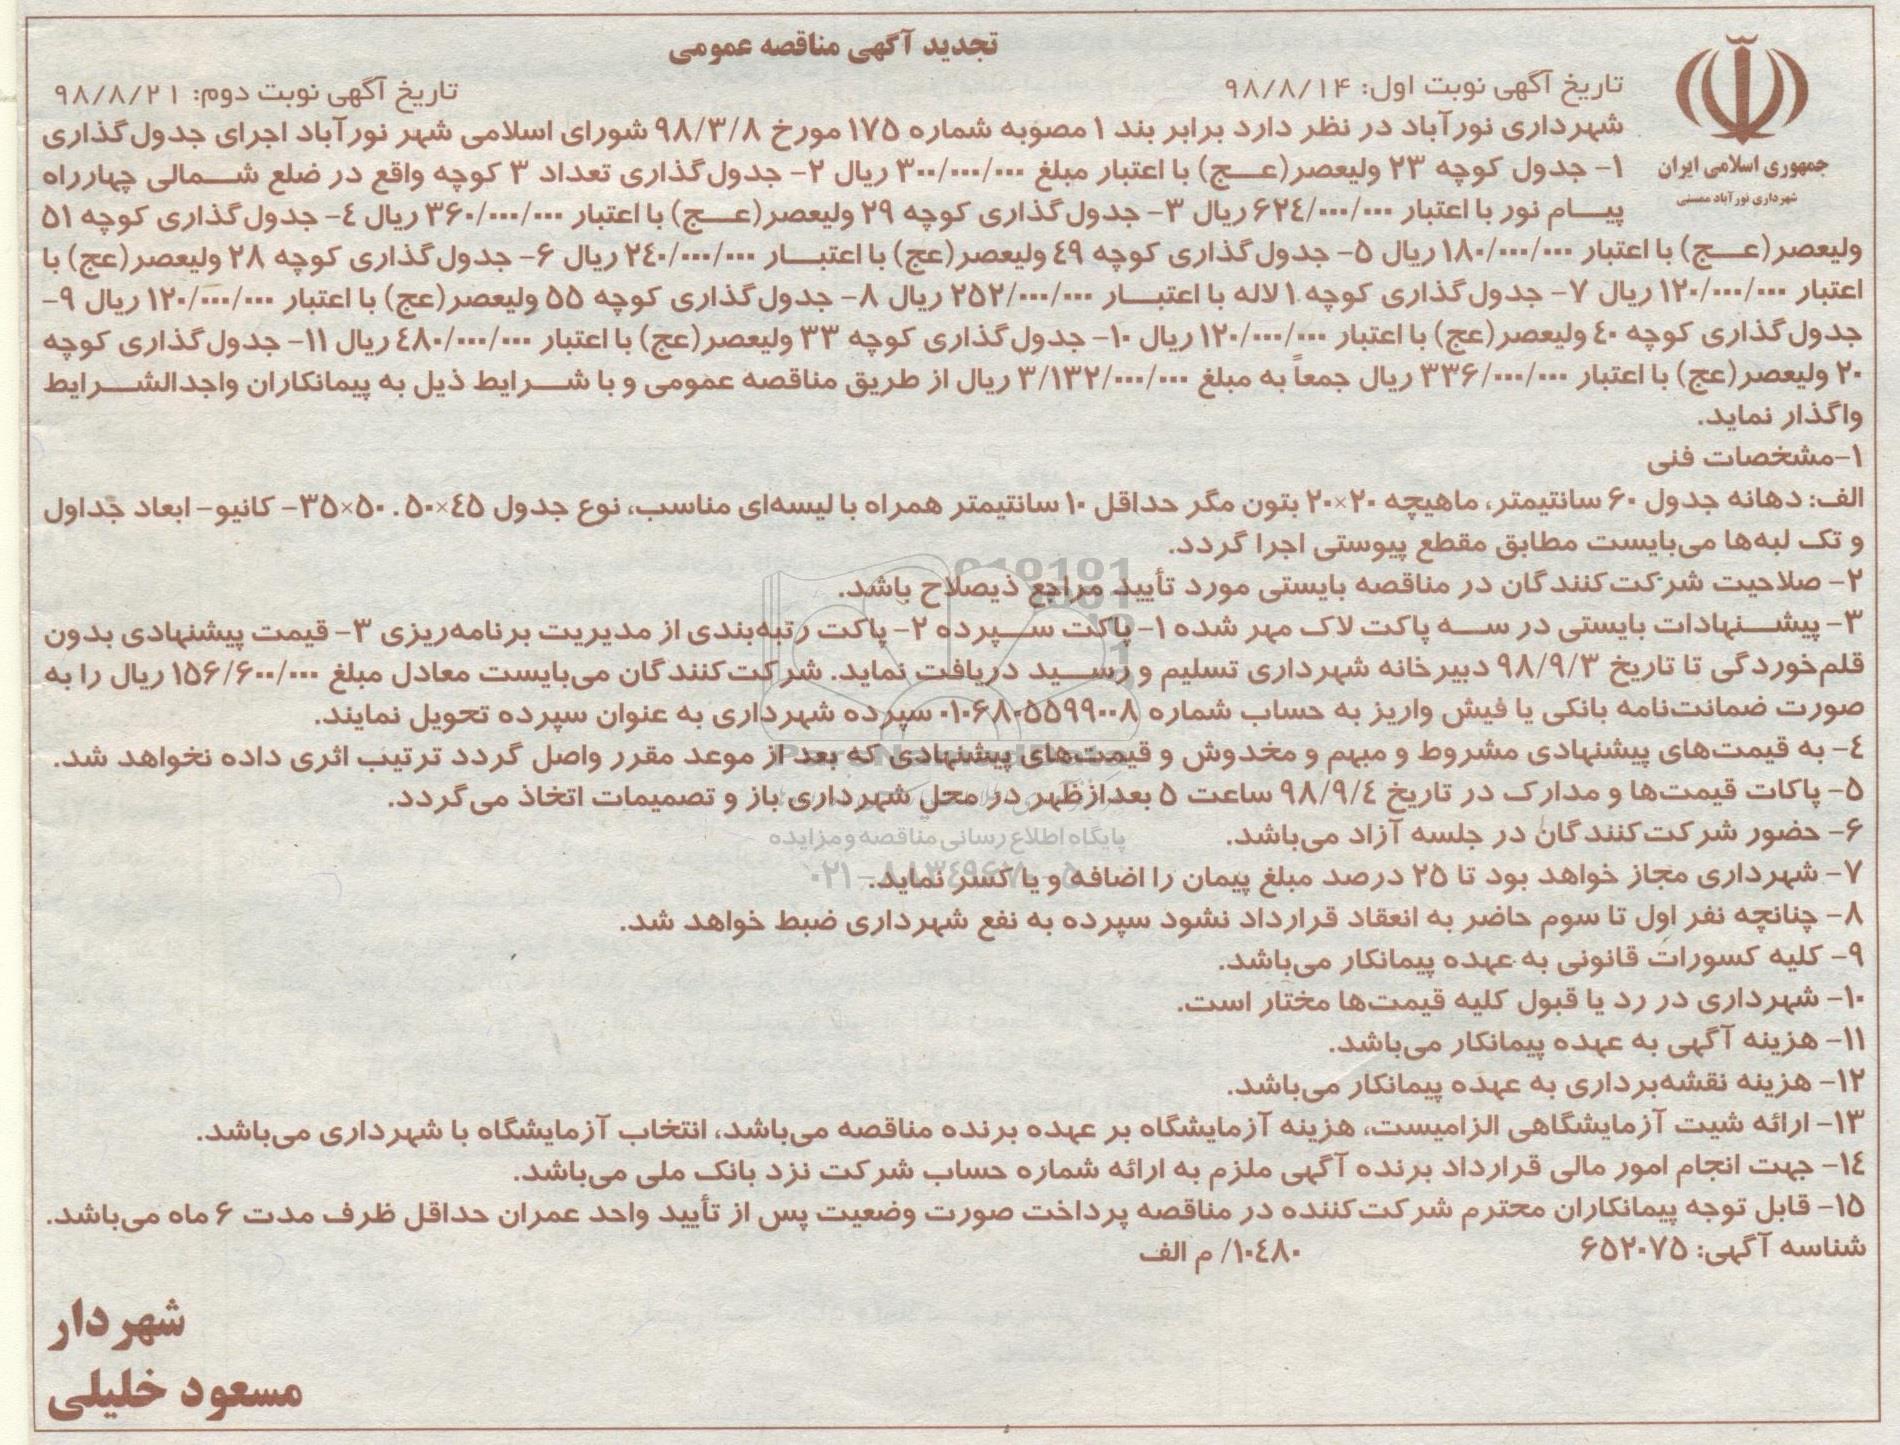 تجدید آگهی مناقصه عمومی
تاریخ آگهی نوبت اول: ۹۸/۸/۱۴
تاریخ آگهی نوبت دوم: ۹۸/۸/۲۱
جمهوری اسلامی ایران
شهرداری نورآباد ممسنی
شهرداری نورآباد در نظر دارد برابر بند ۱ مصوبه شماره ۱۷۵ مورخ ۹۸/۳/۸ شورای اسلامی شهر نورآباد اجرای جدول‌گذاری
۱- جدول کوچه ۲۳ ولیعصر(عج) با اعتبار مبلغ ۳۰۰/۰۰۰/۰۰۰ ریال ۲- جدول‌گذاری تعداد ۳ کوچه واقع در ضلع شمالی چهارراه
پیام نور با اعتبار ۶۲۴/۰۰۰/۰۰۰ ریال ۳- جدول‌گذاری کوچه ۲۹ ولیعصر(عج) با اعتبار ۳۶۰/۰۰۰/۰۰۰ ریال ۴- جدول‌گذاری کوچه ۵۱
ولیعصر(عج) با اعتبار ۱۸۰/۰۰۰/۰۰۰ ریال ۵- جدول‌گذاری کوچه ۴۹ ولیعصر(عج) با اعتبار ۲۴۰/۰۰۰/۰۰۰ ریال ۶- جدول‌گذاری کوچه ۲۸ ولیعصر(عج) با
اعتبار ۱۲۰/۰۰۰/۰۰۰ ریال ۷- جدول‌گذاری کوچه ۱ لاله با اعتبار ۲۵۲/۰۰۰/۰۰۰ ریال ۸- جدول‌گذاری کوچه ۵۵ ولیعصر(عج) با اعتبار ۱۲۰/۰۰۰/۰۰۰ ریال ۹-
جدول‌گذاری کوچه ۴۰ ولیعصر(عج) با اعتبار ۱۲۰/۰۰۰/۰۰۰ ریال ۱۰- جدول‌گذاری کوچه ۳۳ ولیعصر(عج) با اعتبار ۴۸۰/۰۰۰/۰۰۰ ریال ۱۱- جدول‌گذاری کوچه
۲۰ ولیعصر(عج) با اعتبار ۳۳۶/۰۰۰/۰۰۰ ریال جمعاً به مبلغ ۳/۱۳۲/۰۰۰/۰۰۰ ریال از طریق مناقصه عمومی و با شرایط ذیل به پیمانکاران واجدالشرایط
واگذار نماید.
۱-مشخصات فنی
الف: دهانه جدول ۶۰ سانتیمتر، ماهیچه ۲۰×۲۰ بتون مگر حداقل ۱۰ سانتیمتر همراه با لیسه‌ای مناسب، نوع جدول ۴۵×۵۰، ۵۰×۳۵- کانیو- ابعاد جداول
و تک لبه‌ها می‌بایست مطابق مقطع پیوستی اجرا گردد.
۲- صلاحیت شرکت‌کنندگان در مناقصه بایستی مورد تأیید مراجع ذیصلاح باشد.
۳- پیشنهادات بایستی در سه پاکت لاک مهر شده ۱- پاکت سپرده ۲- پاکت رتبه‌بندی از مدیریت برنامه‌ریزی ۳- قیمت پیشنهادی بدون
قلم‌خوردگی تا تاریخ ۹۸/۹/۳ دبیرخانه شهرداری تسلیم و رسید دریافت نماید. شرکت‌کنندگان می‌بایست معادل مبلغ ۱۵۶/۶۰۰/۰۰۰ ریال را به
صورت ضمانت‌نامه بانکی یا فیش واریز به حساب شماره ۰۱۰۶۸۰۵۵۹۹۰۰۸ سپرده شهرداری به عنوان سپرده تحویل نمایند.
۴- به قیمت‌های پیشنهادی مشروط و مبهم و مخدوش و قیمت‌های پیشنهادی که بعد از موعد مقرر واصل گردد ترتیب اثری داده نخواهد شد.
۵- پاکات قیمت‌ها و مدارک در تاریخ ۹۸/۹/۴ ساعت ۵ بعدازظهر در محل شهرداری باز و تصمیمات اتخاذ می‌گردد.
پایگاه اطلاع رسانی مناقصه و مزایده
۶- حضور شرکت‌کنندگان در جلسه آزاد می‌باشد.
۷- شهرداری مجاز خواهد بود تا ۲۵ درصد مبلغ پیمان را اضافه و یا کسر نماید.
۸- چنانچه نفر اول تا سوم حاضر به انعقاد قرارداد نشود سپرده به نفع شهرداری ضبط خواهد شد.
۹- کلیه کسورات قانونی به عهده پیمانکار می‌باشد.
۱۰- شهرداری در رد یا قبول کلیه قیمت‌ها مختار است.
۱۱- هزینه آگهی به عهده پیمانکار می‌باشد.
۱۲- هزینه نقشه‌برداری به عهده پیمانکار می‌باشد.
۱۳- ارائه شیت آزمایشگاهی الزامیست، هزینه آزمایشگاه بر عهده برنده مناقصه می‌باشد، انتخاب آزمایشگاه با شهرداری می‌باشد.
۱۴- جهت انجام امور مالی قرارداد برنده آگهی ملزم به ارائه شماره حساب شرکت نزد بانک ملی می‌باشد.
۱۵- قابل توجه پیمانکاران محترم شرکت‌کننده در مناقصه پرداخت صورت وضعیت پس از تأیید واحد عمران حداقل ظرف مدت ۶ ماه می‌باشد.
شناسه آگهی: ۶۵۲۰۷۵
۱۰۴۸۰/ م الف
شهردار
مسعود خلیلی